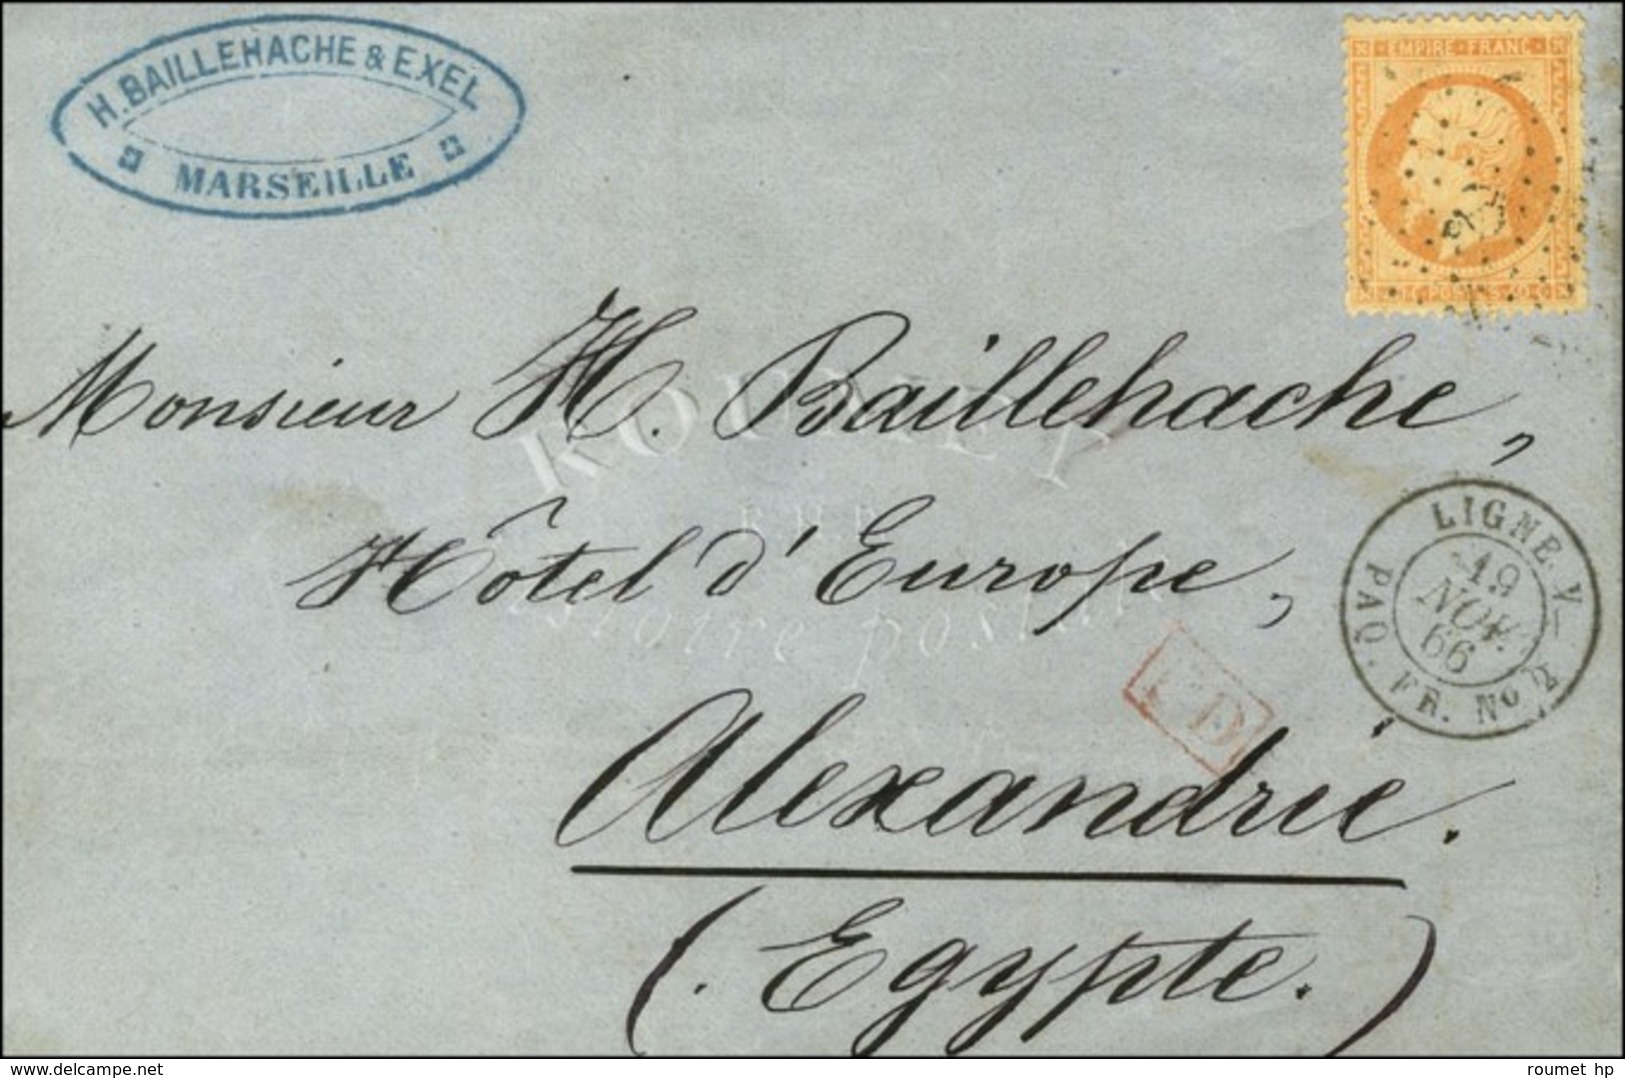 H. BAILLEHACHE & EXEL
MARSEILLE
EMPIRE · FRANC ·
POSTES
Monsieur H. Baillehache,
Hôtel d'Europe,
Alexandrie.
(. Egypte.)
LIGNE V
19
NOV.
66
PAQ. FR. No 2
PD
ROUMET
histoire postale
www.delcampe.net
roumet hp